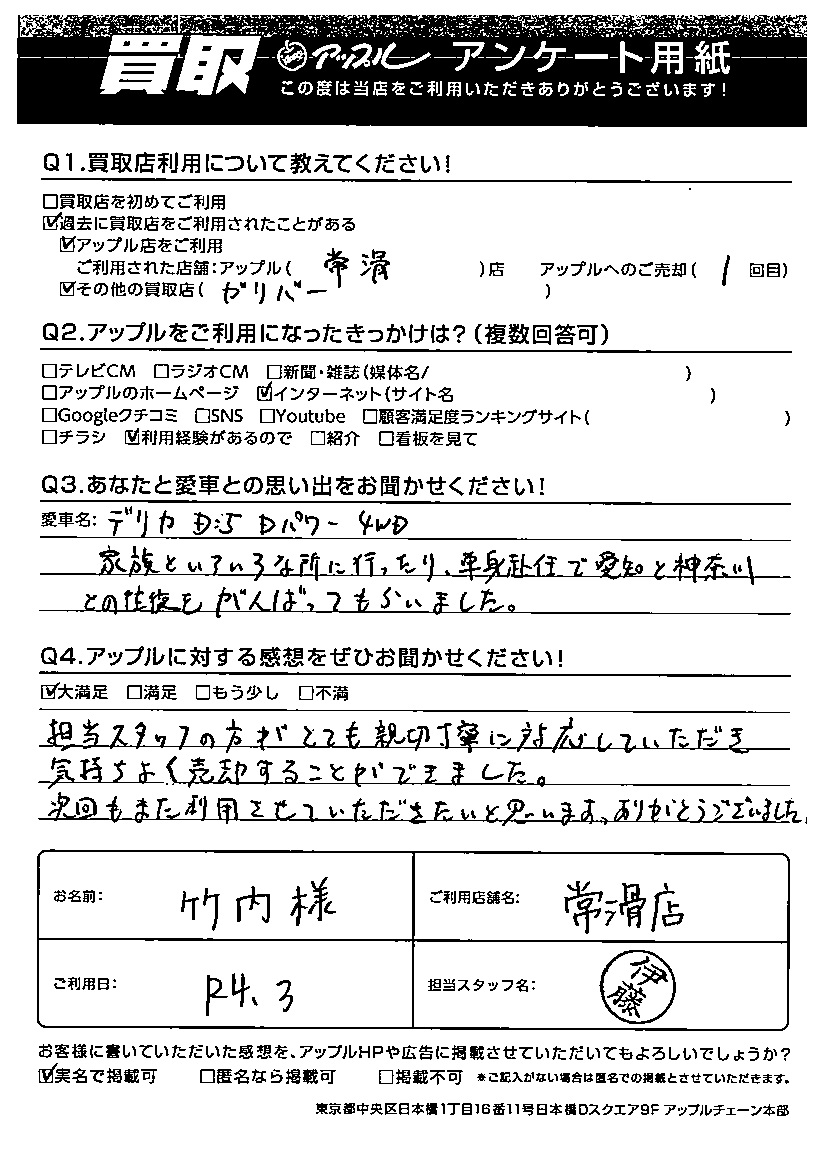 買取 アップル アンケート用紙
この度は当店をご利用いただきありがとうございます!
Q1.買取店利用について教えてください!
□買取店を初めてご利用
☑過去に買取店をご利用されたことがある
☑アップル店をご利用
ご利用された店舗:アップル( 常滑 )店 アップルへのご売却( 1 回目)
☑その他の買取店( ガリバー )
Q2.アップルをご利用になったきっかけは?(複数回答可)
□テレビCM □ラジオCM □新聞・雑誌(媒体名/ )
□アップルのホームページ ☑インターネット(サイト名 )
□Googleクチコミ □SNS □Youtube □顧客満足度ランキングサイト( )
□チラシ ☑利用経験があるので □紹介 □看板を見て
Q3.あなたと愛車との思い出をお聞かせください!
愛車名: デリカ D:5 Dパワー 4WD
家族といろいろな所に行ったり、単身赴任で愛知と神奈川
との往復もがんばってもらいました。
Q4.アップルに対する感想をぜひお聞かせください!
☑大満足 □満足 □もう少し □不満
担当スタッフの方がとても親切丁寧に対応していただき
気持ちよく売却することができました。
次回もまた利用させていただきたいと思います。ありがとうございました。
お名前: 竹内様 ご利用店舗名: 常滑店
ご利用日: R4.3 担当スタッフ名: 伊藤
お客様に書いていただいた感想を、アップルHPや広告に掲載させていただいてもよろしいでしょうか?
☑実名で掲載可 □匿名なら掲載可 □掲載不可 *ご記入がない場合は匿名での掲載とさせていただきます。
東京都中央区日本橋1丁目16番11号日本橋Dスクエア9F アップルチェーン本部